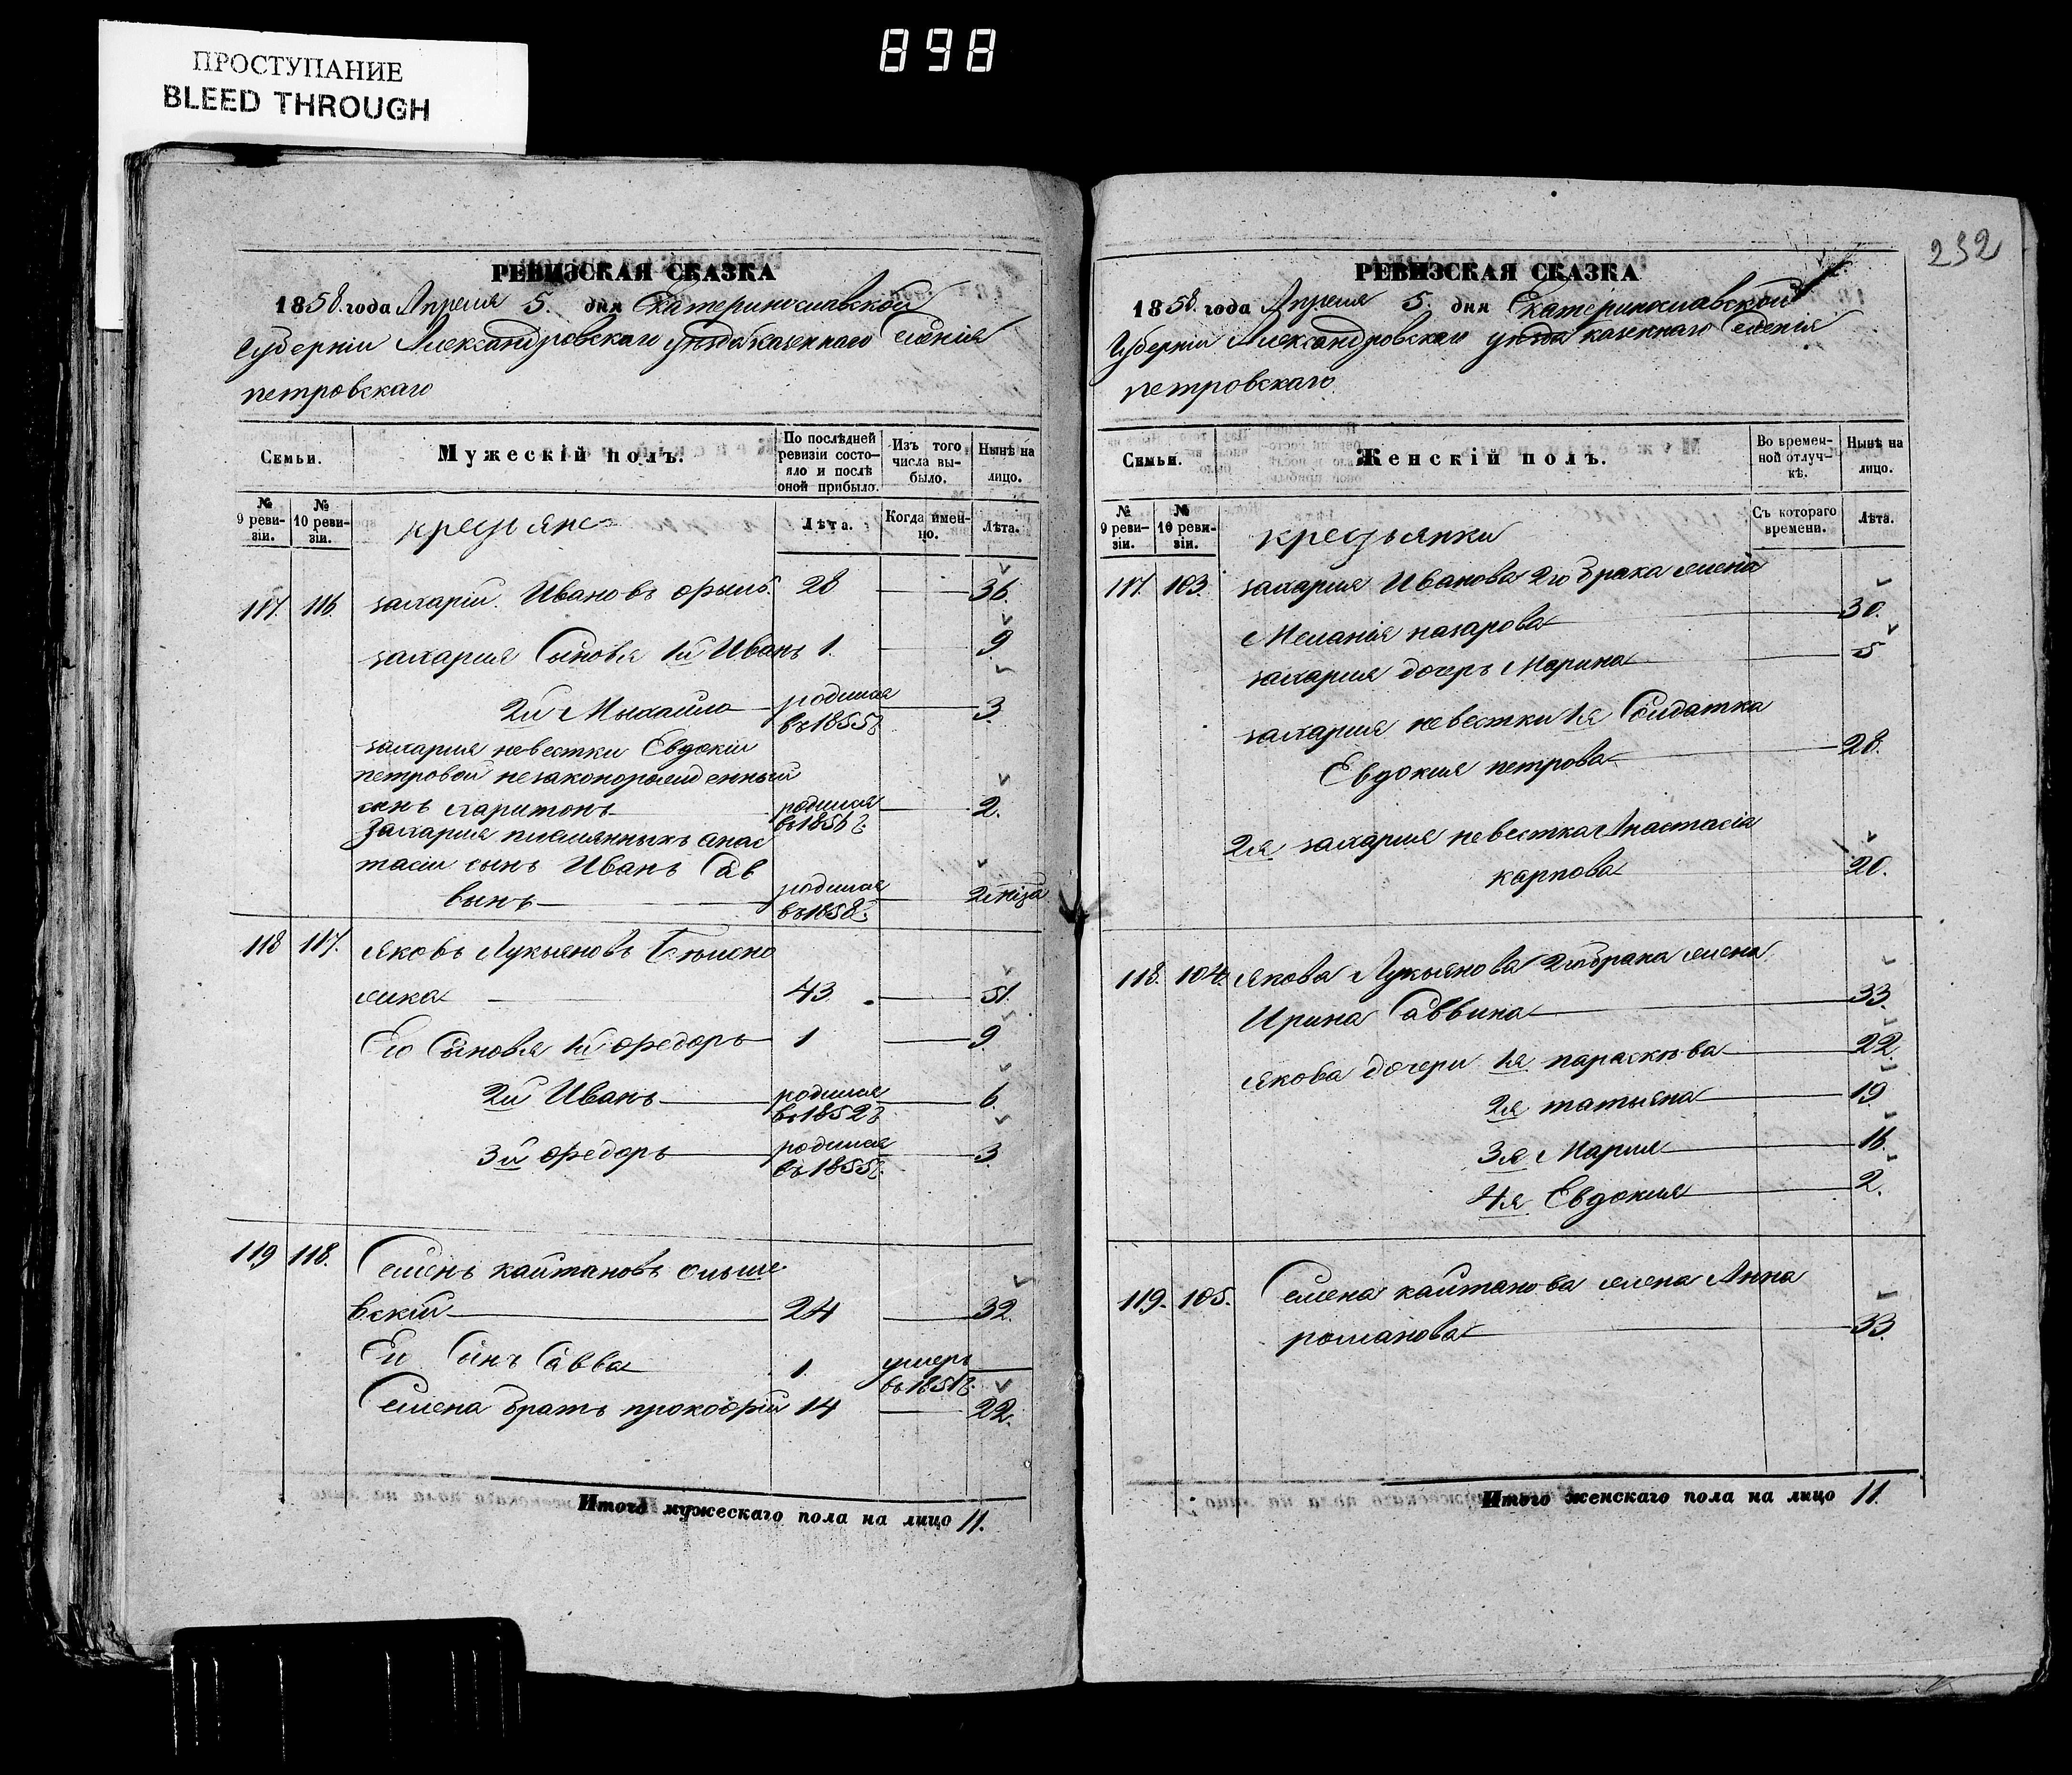 898
ПРОСТУПАНИЕ
BLEED THROUGH
РЕВИЗСКАЯ СКАЗКА
1858 года Апреля 5. дня Екатеринославской
Губерніи Александровского уезда казеннаго Селенія
петровскаго
Семьи.
Мужескій полъ.
По послѣдней ревизіи состояло и послѣ оной прибыло.
Изъ того числа выбыло.
Нынѣ на лицо.
№ 9 ревизіи.
№ 10 ревизіи.
крестьяне
Лѣта.
Когда именно.
Лѣта.
117. 116. захарій Ивановъ 28 36.
захарія Сыновя 1й Иванъ 1. 9
2й Михайло родился въ 1855 г. 3.
захария невестки Евдокіи
петровой незаконорожденный
сынъ харитонъ родился въ 1856 г. 2.
Захария племянныхъ Анас
тасіи сынъ Иванъ Сав
вынъ родился въ 1858 г.
118 117. яковъ Лукьяновъ
43. 51.
Его Сыновя 1й Федоръ 1 9.
2й Иванъ родился въ 1852 г. 6.
3й Федоръ родился въ 1855 г. 3.
119 118. Семенъ кайтановъ ольше
вскій 24 32.
Его Сынъ Савва 1. умеръ въ 1851 г.
Семена братъ прокофій 14 22.
Итого мужескаго пола на лицо 11.
232
РЕВИЗСКАЯ СКАЗКА
1858 года Апреля 5. дня Екатеринославской
Губерніи Александровскаго уезда казеннаго Селенія
петровскаго
Семьи.
Женскій полъ.
Во временной отлучкѣ.
Нынѣ на лицо.
№ 9 ревизіи.
№ 10 ревизіи.
крестьянки
Съ котораго времени.
Лѣта.
117. 103. захария Иванова 2го брака жена
Меланія назарова 30.
захария дочерь Марина 5
захария невестки 1я Солдатка
Евдокия петрова 28.
2я захария невестка Анастасія
карпова 20.
118. 104. якова Лукьянова 2го брака жена
Ирина Саввина 33.
якова дочери 1я параскѣва 22.
2я татьяна 19
3я Мария 16.
4я Евдокия 2.
119. 105. Семена кайтанова жена Анна
романова 33.
Итого женскаго пола на лицо 11.